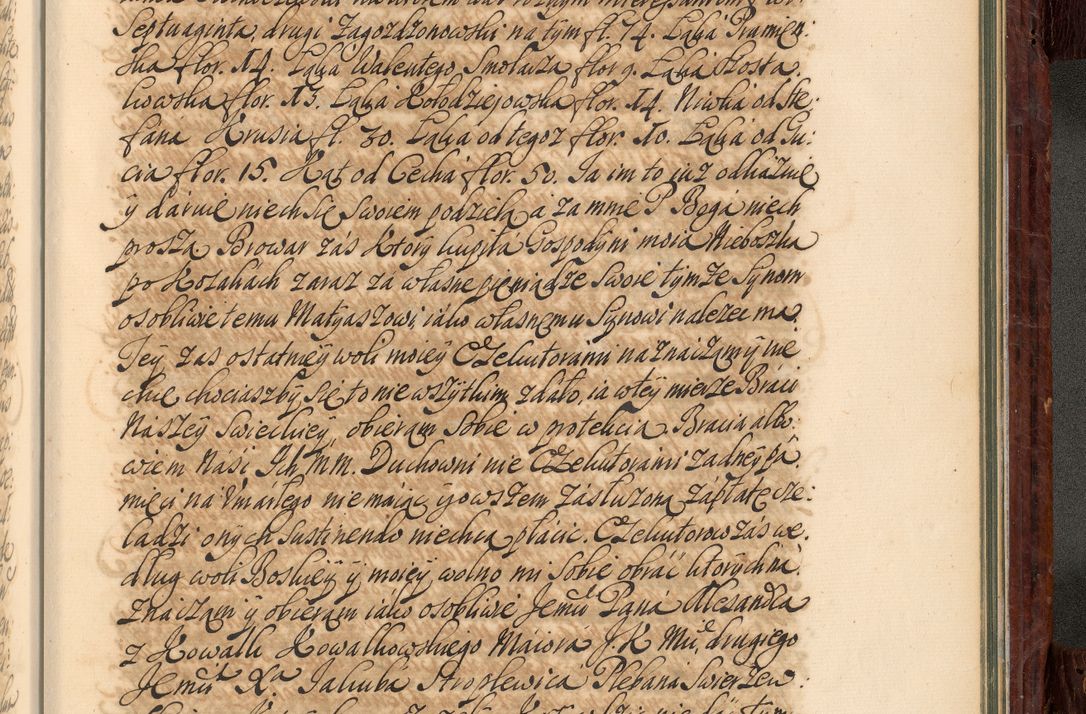 Septuaginta, drugi Zagozdzonowski na tym fl. 74. Łąka Piamien
ska flor. 14. Łąka Walentego Smolarza flor 9. Łąka Kosta
kowska flor. 13. Łąka Kołodziejowska flor. 14. Niwka od Ste:
fana Krusia fl. 30. Łąka od tegoz flor. 10. Łąka od Gu:
cia flor. 15. Kąt od Cecha flor. 50. Ja im to juz odkazuię
ÿ daruię niech się swoiem podzielą a za mnie P. Boga niech
proszą. Browar zás ktorÿ kupiła Gospodÿni moia Nieboszka
po Kozakach zaraz za własne pieniądze swoie tymże Synom
osobliwie temu Matyaszowi iako własnemu Sÿnowi nalezec ma.
Teÿ zas ostatnieÿ woli moieÿ Exekutorami naznaczamÿ nie
chcę chociaszbÿ się to nie wszÿtkim zdało, ia wteÿ mierze Braci
Naszeÿ Swieckieÿ, obieram sobie w protekcią Bracia albo:
wiem Nasi Ich MM. Duchowni nie Exekutorami zadneÿ pá:
mięci na Zmarłego nie maiąc ÿowszem zasłuzoną zapłatę cze:
ladzi onÿch sustinendo niechcą płacic. Exekutorow zás we:
dług woli Boskieÿ ÿ moieÿ wolno mi sobie obrać ktorÿch ná:
znaczam ÿ obieram iako osobliwie Jemći Pana Alexandra
z Kowalk Kowalkowskiego Maiora J. K. Mći, drugiego
Jemći Xa Jakuba Stroplewica Plebana Swierżew: